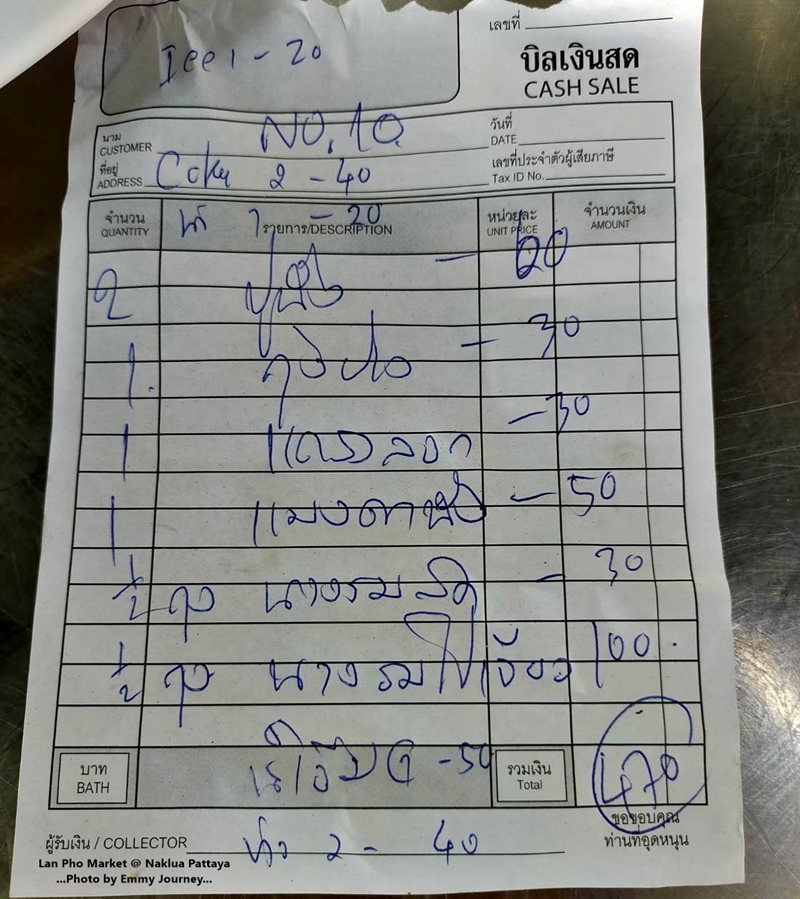 Ice 1 - 20
เลขที่
บิลเงินสด
CASH SALE
นาม
CUSTOMER
NO.10
วันที่
DATE
ที่อยู่
ADDRESS
Coke 2 - 40
เลขที่ประจำตัวผู้เสียภาษี
Tax ID No.
น้ำ 1 - 20
จำนวน
QUANTITY
รายการ/DESCRIPTION
หน่วยละ
UNIT PRICE
จำนวนเงิน
AMOUNT
2 ปูนึ่ง - 60
1 - 30
1 - 30
1 แมงดานึ่ง - 50
1/2 ถุง นางรมสด - 30
1/2 ถุง นางรมไข่เจียว 100
น้ำจิ้ม - 50
บาท
BATH
รวมเงิน
Total
470
ขอขอบคุณ
ท่านที่อุดหนุน
ผู้รับเงิน / COLLECTOR
2 - 40
Lan Pho Market @ Naklua Pattaya
...Photo by Emmy Journey...